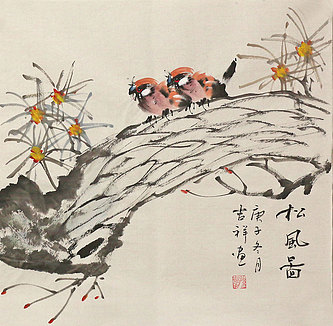 松風圖
庚子冬月
吉祥画